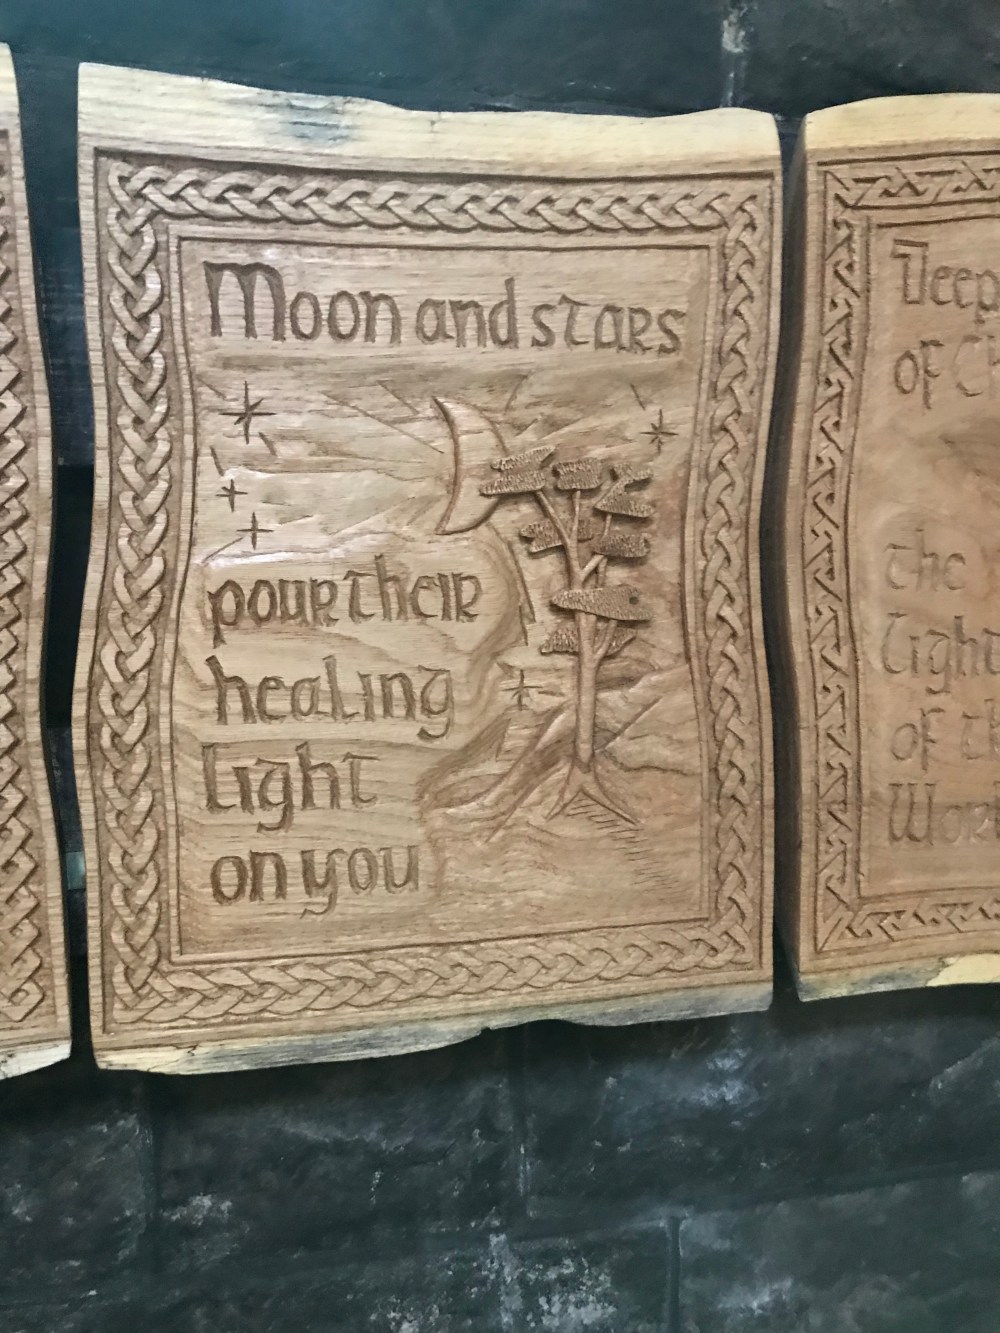 Moon and stars
pour their
healing
light
on you
Deep
of
the
Light
of